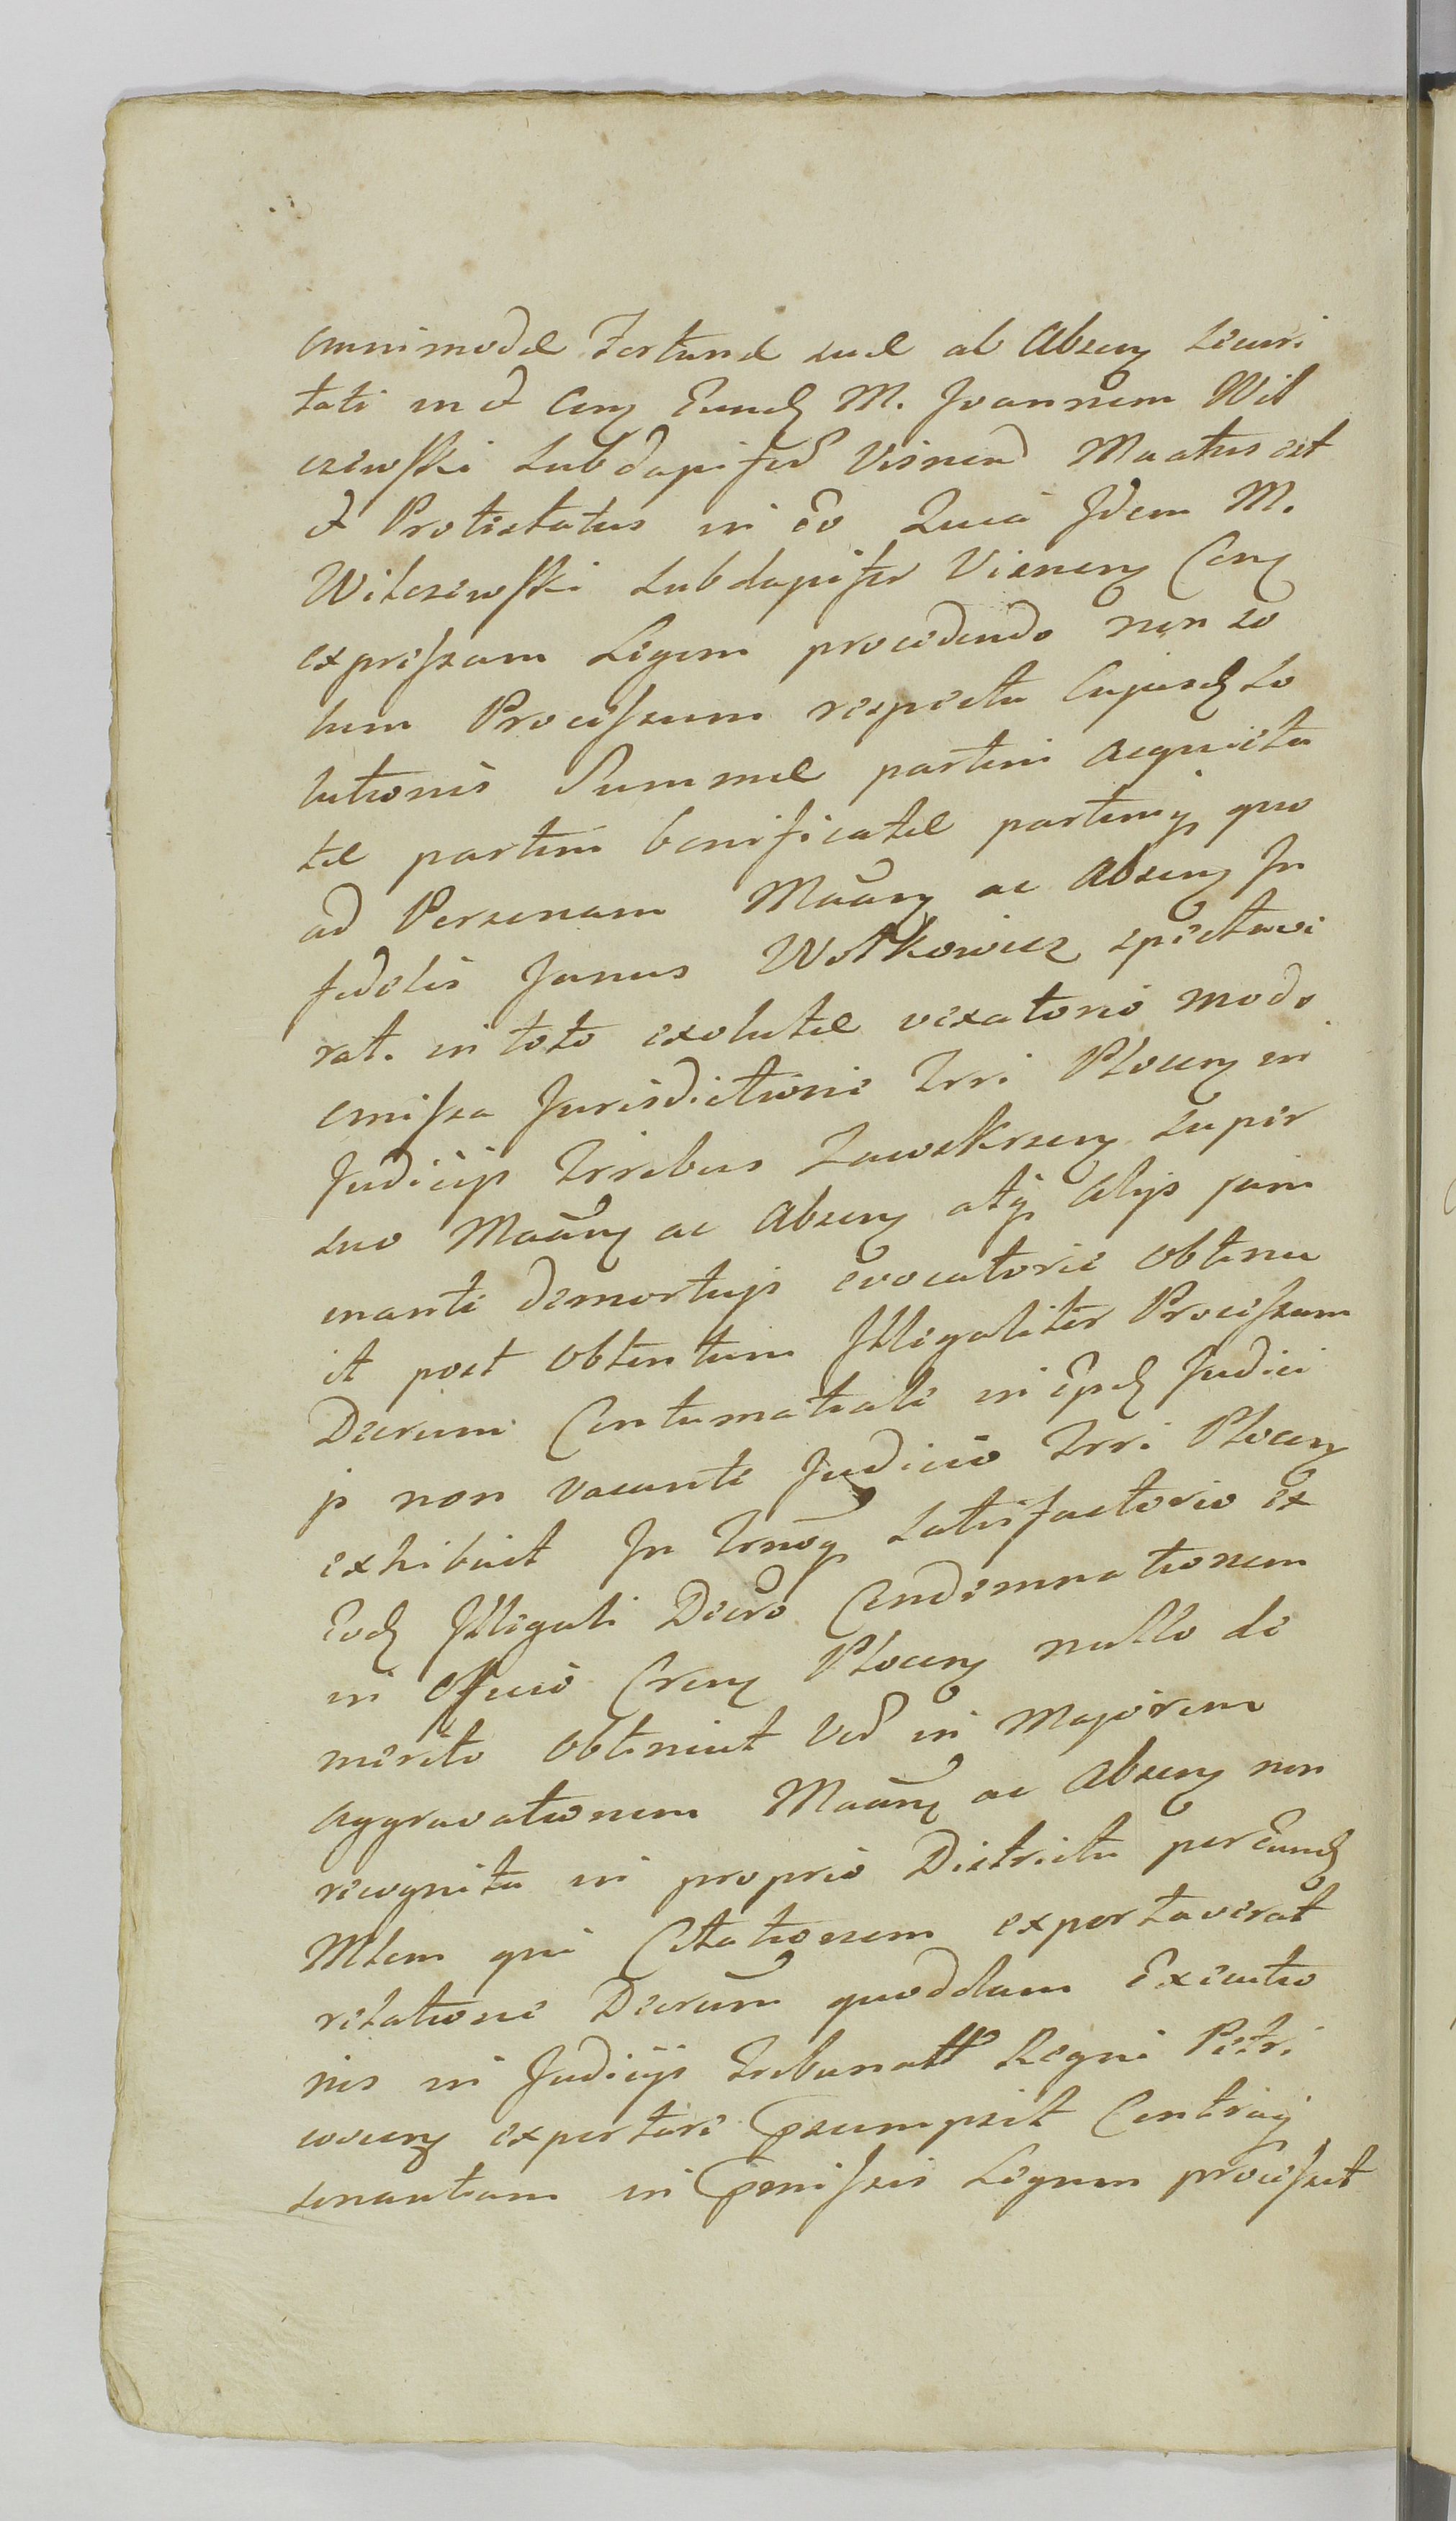 omnimodæ Fortunæ suæ ab Absen securi
tati in et Con Eund M. Joannem Wil
czewski Subdapiferum Visnen Mãatus est
et Protestatus in eo Quia Idem M.
Wilczewski Subdapifer Visnen Con
expressam Legem procedendo non so
lum Processum respectu Cujusd So
lutionis Summæ partim acquieta
tæ partim bonificatæ partimq quo
ad Personam Mãan ac Absen In
fidelis Janus Wolkowicz spectave
rat. in toto exolutæ vexatorio modo
omissa Jurisdictione Trri Plocen in
Judicijs Trribus Zawskrzen super
suo Mãan ac Absen atq alijs jam
enante demortujs evocatorie obtinu
it post obtentum Illegaliter Processum
Decrum Contumatiale in Ejsd Judici
js non vacante Judicio Trri Plocen
exhibuit In Trnoq satisfactorio ex
Eod Illegali Decro Condemnationem
in Officio Cren Plocen nullo de
merito obtinuit Verum in Majorem
aggravationem Mãan ac Absen non
recognita in proprio Districtu per Eund
Mlem qui Citationem exportaverat
relatione Decrum quoddam Executio
nis in Judicijs Tribunall Regni Petri
covien exportare Præsumpsit Contraq
senantiam in Præmissis Legum processit